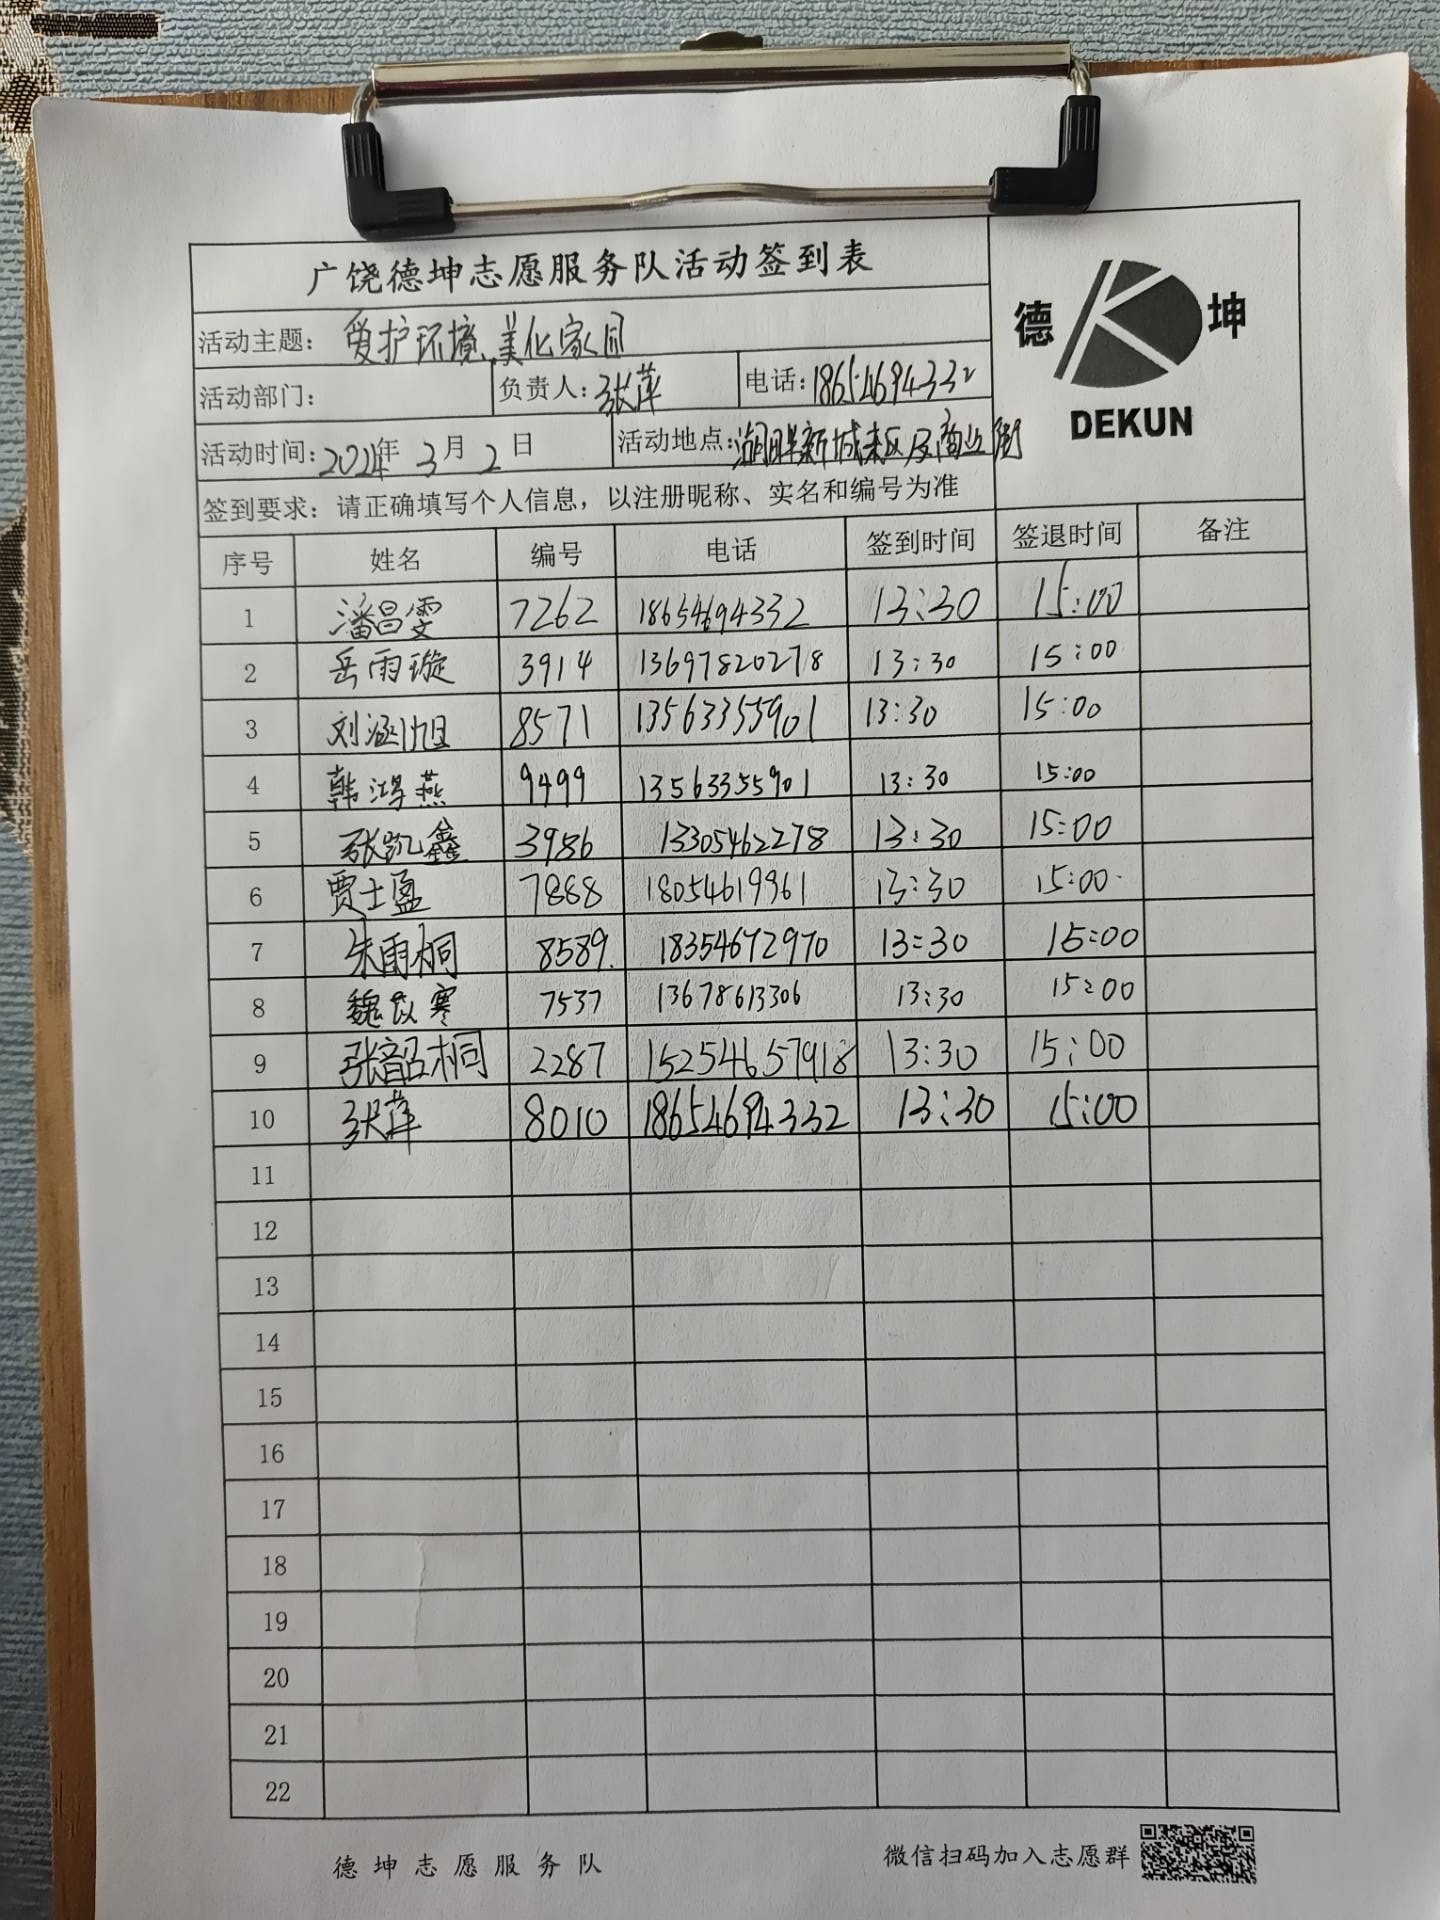 广饶德坤志愿服务队活动签到表
德 坤
DEKUN
活动主题：爱护环境，美化家园
活动部门： 负责人：张萍 电话：18654694332
活动时间：2024年3月2日 活动地点：湖畔新城东区及商业街
签到要求：请正确填写个人信息，以注册昵称、实名和编号为准
序号 姓名 编号 电话 签到时间 签退时间 备注
1 潘昌雯 7262 18654694332 13:30 15:00
2 岳雨璇 3914 13697820278 13:30 15:00
3 刘涵旭 8571 13563355901 13:30 15:00
4 韩鸿燕 9499 13563355901 13:30 15:00
5 张凯鑫 3986 13305462278 13:30 15:00
6 贾士盈 7888 18054619361 13:30 15:00
7 朱雨桐 8589 18354672970 13:30 15:00
8 魏 寒 7537 13678613306 13:30 15:00
9 张韶桐 2287 15254657918 13:30 15:00
10 张萍 8010 18654694332 13:30 15:00
11
12
13
14
15
16
17
18
19
20
21
22
德坤志愿服务队 微信扫码加入志愿群